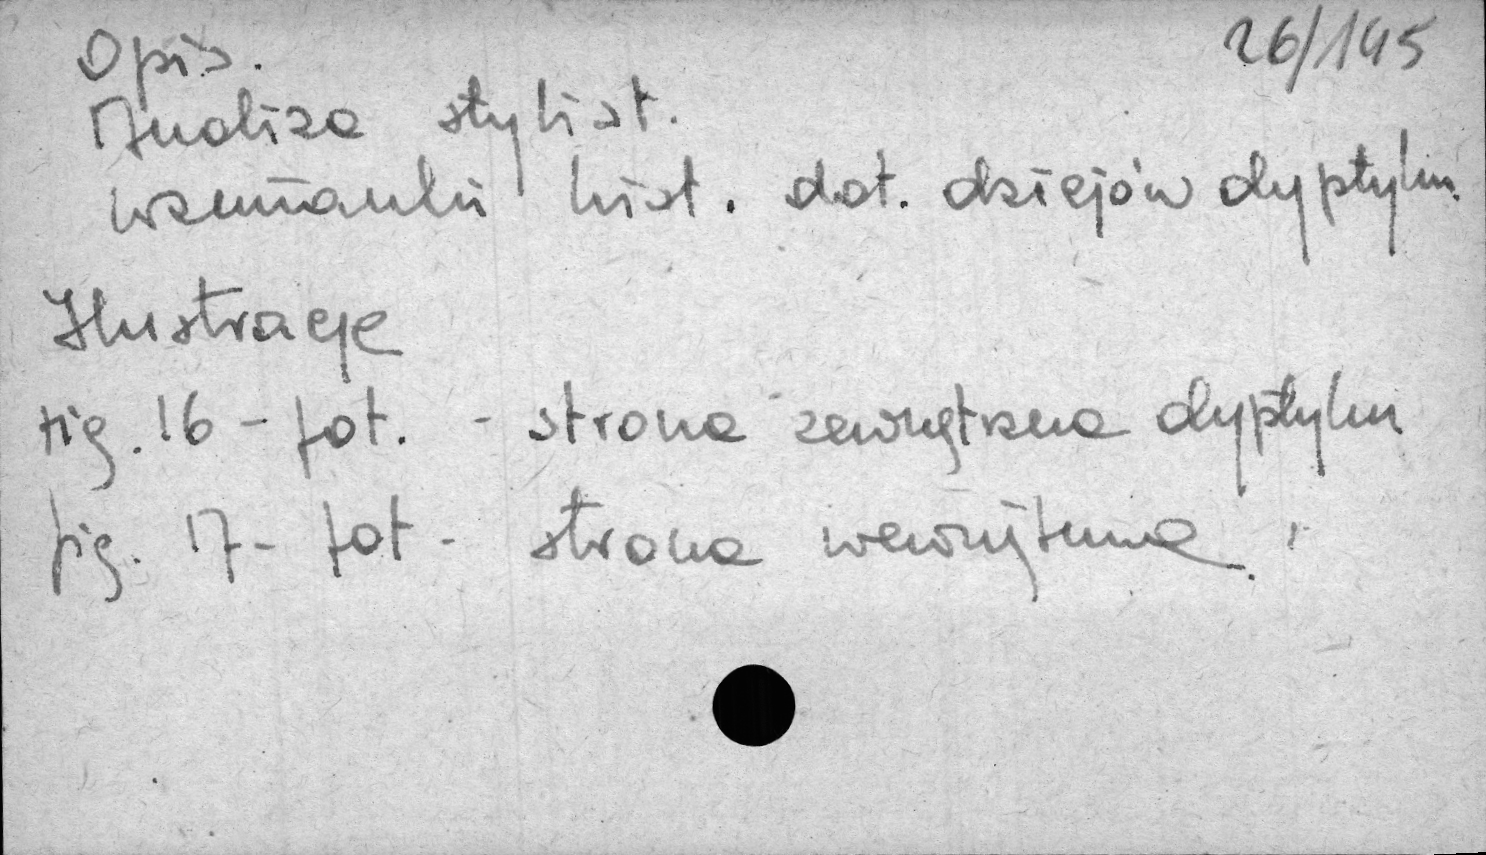 26/145
Opis.
Analiza stylist.
wzmianki hist. dot. dziejów dyptyku
Ilustracje
fig. 16 - fot. - strona zewnętrzna dyptyku
fig. 17 - fot - strona wewnętrzna.